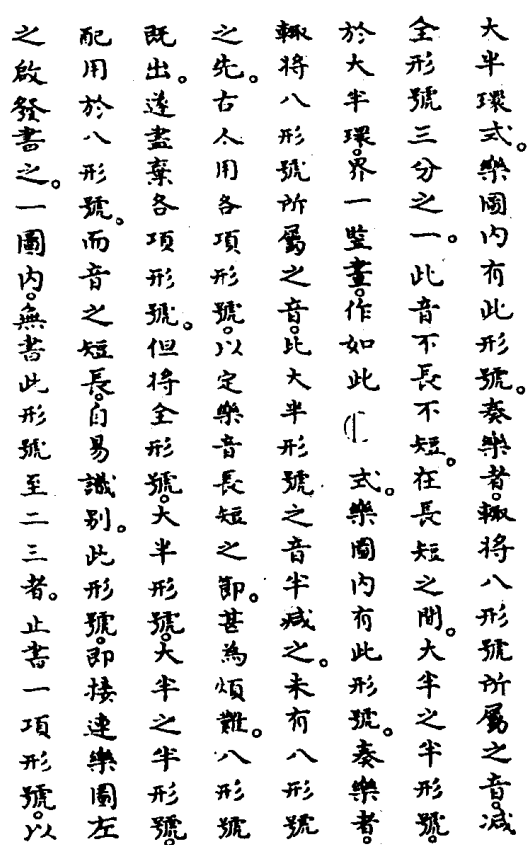 大半環式。樂圖內有此形號。奏樂者。輙將八形號所屬之音。減
全形號三分之一。此音不長不短。在長短之間。大半之半形號。
於大半環。界一竪畫。作如此 式。樂圖內有此形號。奏樂者。
輙將八形號所屬之音。比大半形號之音半減之。未有八形號
之先。古人用各項形號。以定樂音長短之節。甚為煩難。八形號
既出。遂盡棄各項形號。但將全形號。大半形號。大半之半形號。
配用於八形號。而音之短長。自易識別。此形號。即接連樂圖左
之啟發書之。一圖內。無書此形號至二三者。止書一項形號。以